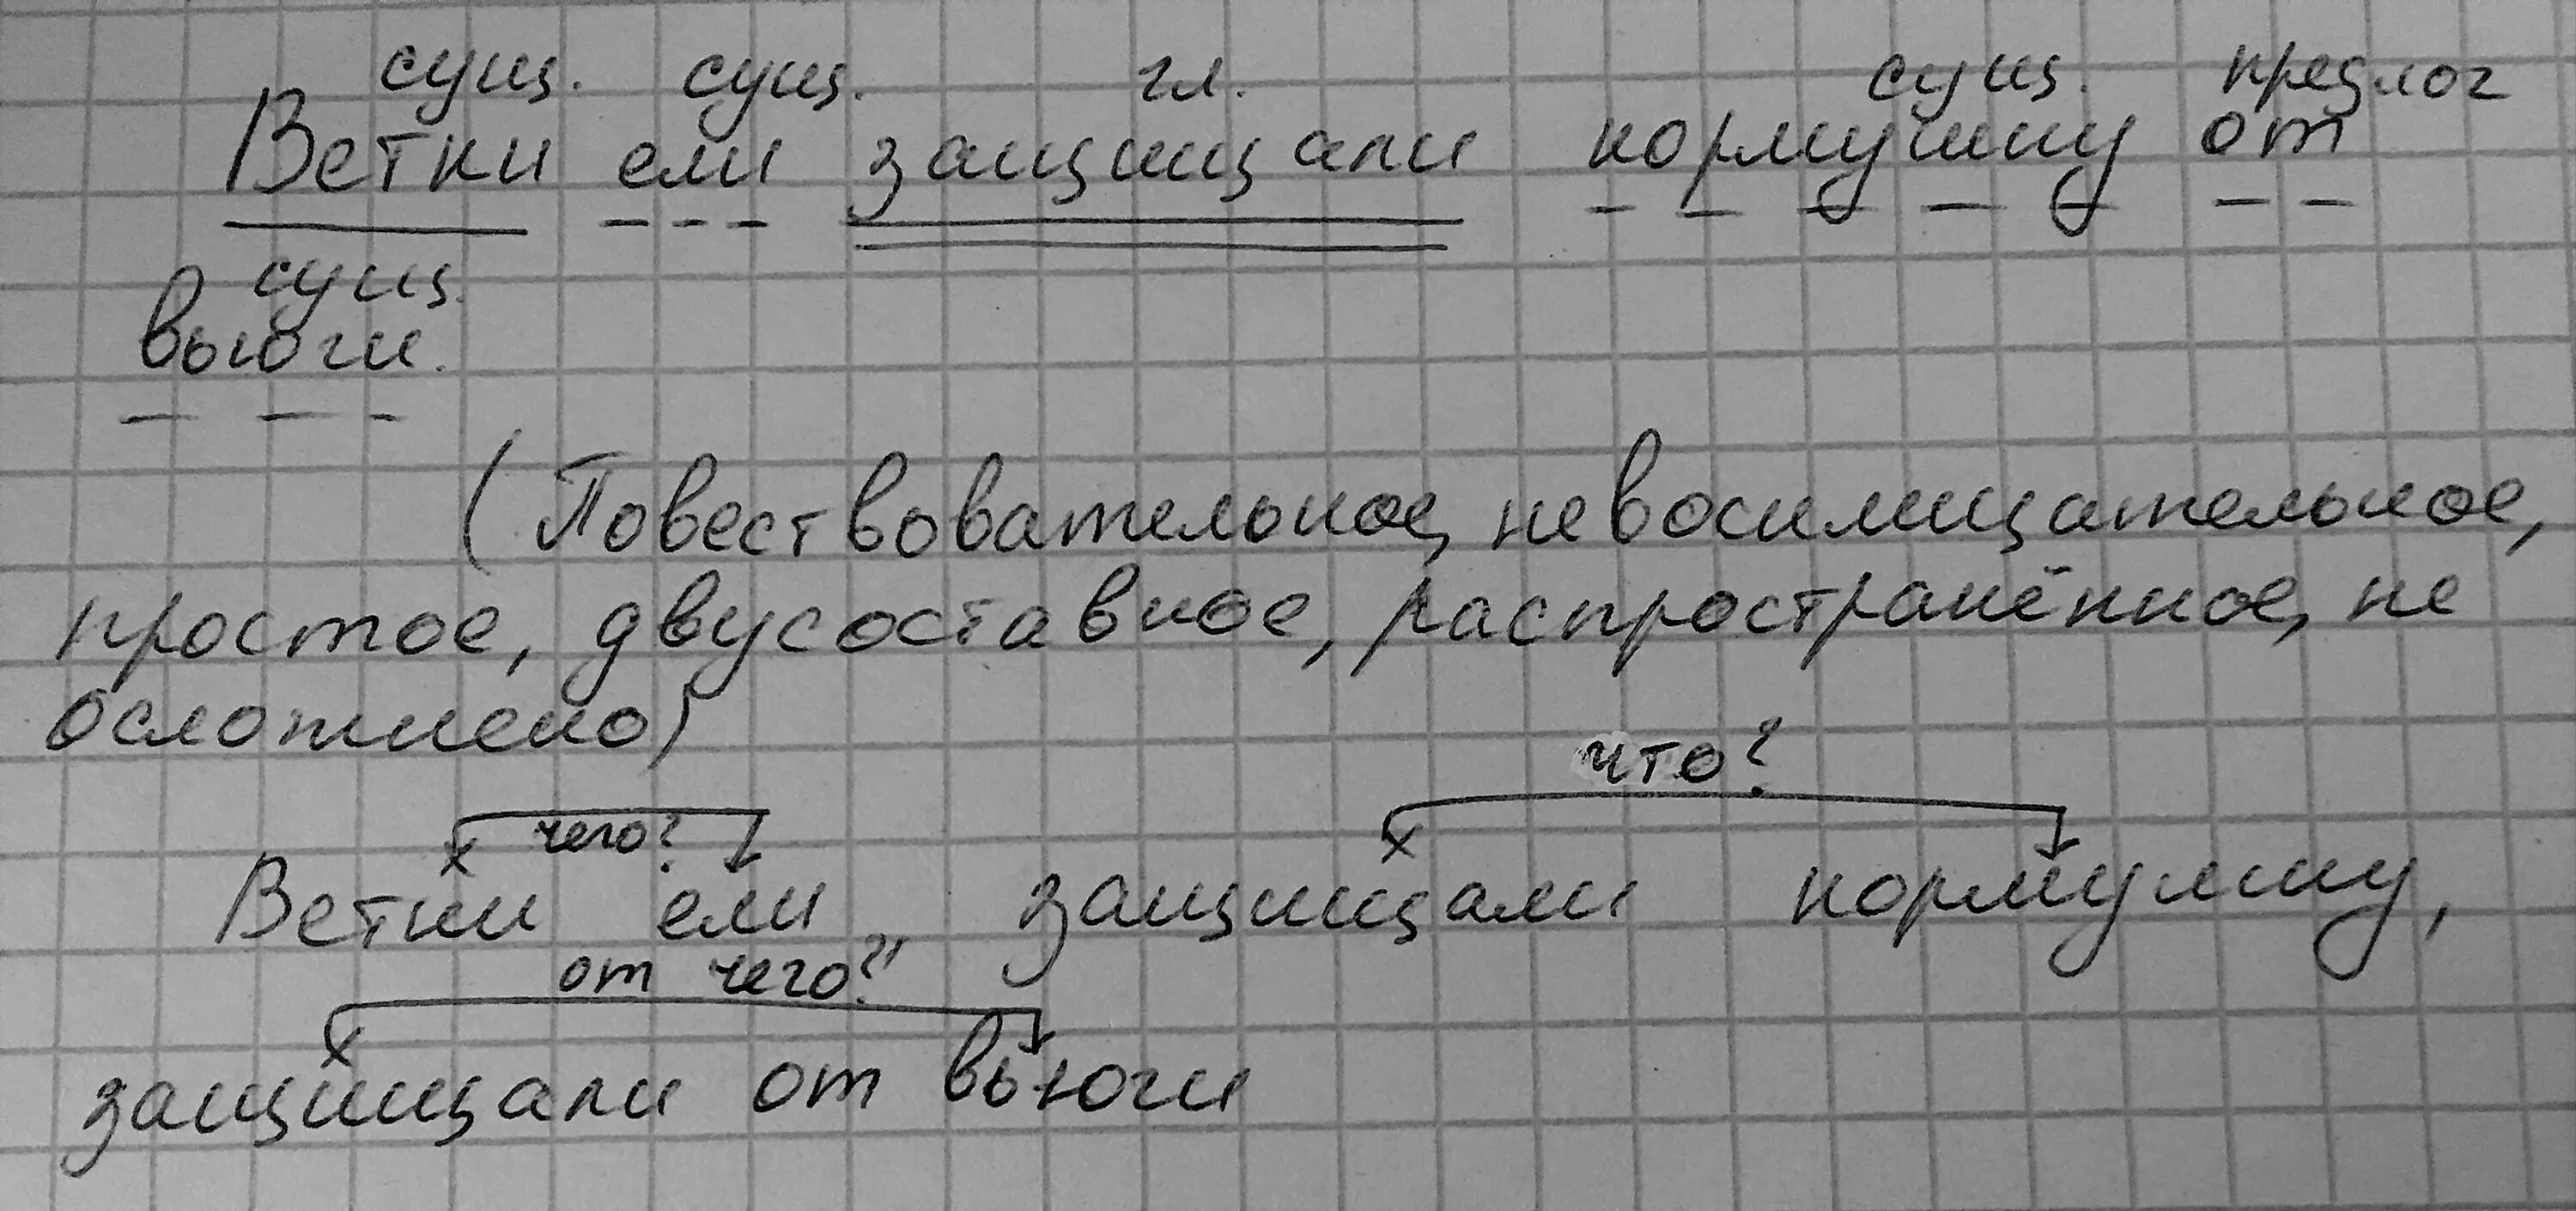 сущ. сущ. гл. сущ. предлог
Ветки ели защищали кормушку от
сущ.
вьюги.
(Повествовательное, невосклицательное,
простое, двусоставное, распространённое, не
осложнено)
что?
чего?
Ветки ели, защищали кормушку,
от чего?"
защищали от вьюги